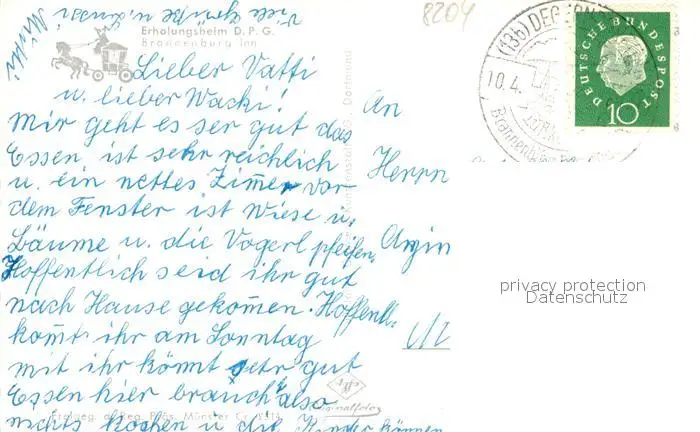 Viele Grüße u. Bussi
Mutti
8204
Erholungsheim D. P. G.
Brannenburg Inn
Lieber Vatti
u. lieber Wacki!
Mir geht es ser gut das
Essen ist sehr reichlich
u. ein nettes Zimer vor
dem Fenster ist Wiese u.
Bäume u. die Vogerl pfeifen,
Hoffentlich seid ihr gut
nach Hause gekomen. Hoffentl.
komt ihr am Sonntag
mit ihr könnt sehr gut
Essen hier brauch also
nichts kochen u die Kinder können
An
Herrn
(13b) DEG
10.4.
DEUTSCHE BUNDESPOST
10
privacy protection
Datenschutz
Freigeg. d. Reg. Präs. Münster
Originalfoto